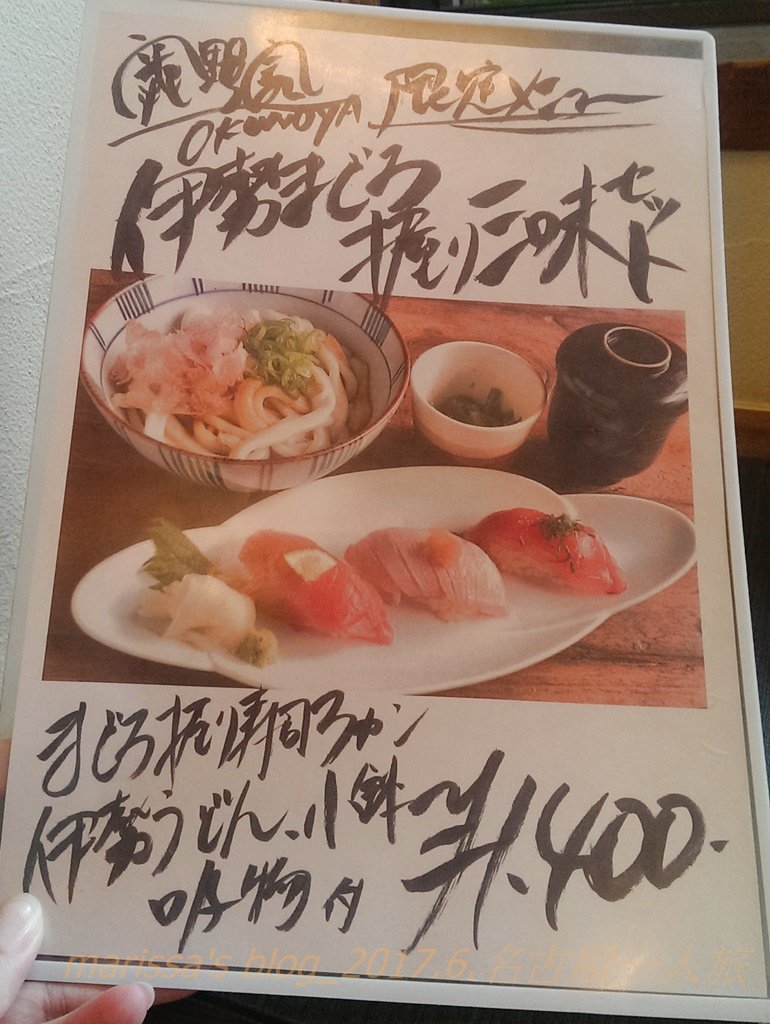 限定メニュー
OKUNOYA
伊勢まぐろ
握り三味セット
まぐろ握り寿司3カン
伊勢うどん、小鉢
吸物付
¥1,400-
marissa's blog_2017.6.名古屋一人旅